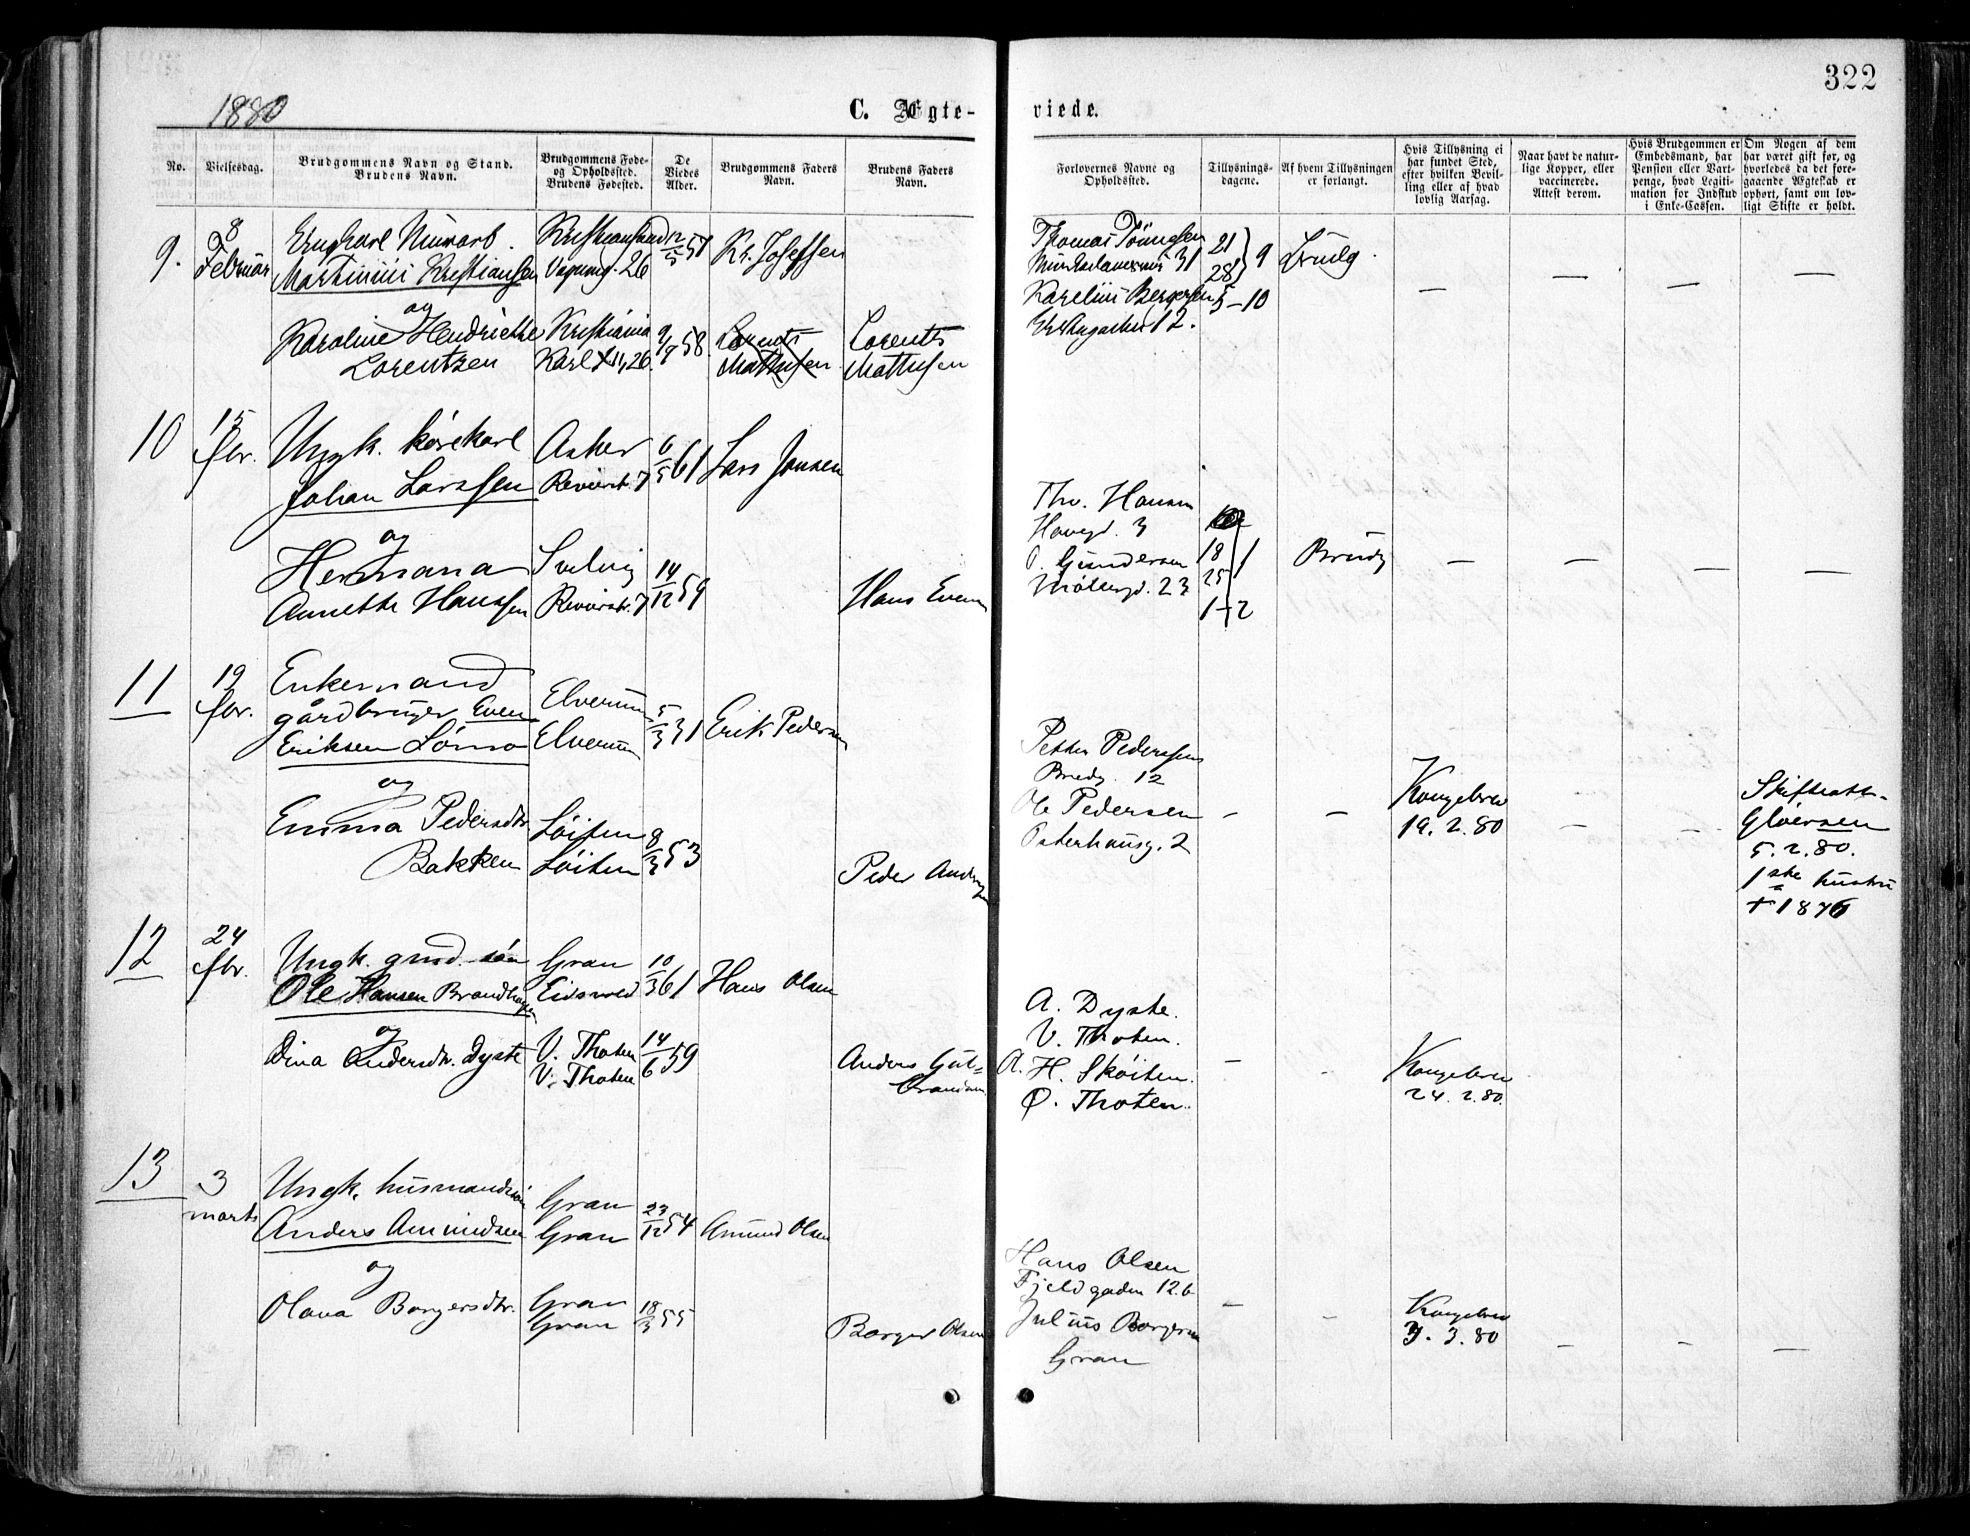 322
1880
C. Ægte-
viede.
No.
Vielsesdag.
Brudgommens Navn og Stand.
Brudens Navn.
Brudgommens Føde-
og Opholdssted.
Brudens Fødested.
De
Viedes
Alder.
Brudgommens Faders
Navn.
Brudens Faders
Navn.
Forlovernes Navne og
Opholdssted.
Tillysnings-
dagene.
Af hvem Tillysningen
er forlangt.
Hvis Tillysning ei
har fundet Sted,
efter hvilken Bevil-
ling eller af hvad
lovlig Aarsag.
Naar havt de natur-
lige Kopper, eller
vaccinerede.
Attest derom.
Hvis Brudgommen er
Embedsmand, har
Pension eller Vart-
penge, hvad Legiti-
mation for Indskud
i Enke-Cassen.
Om Nogen af dem
har været gift før, og
hvorledes da det fore-
gaaende Ægteskab er
ophørt, samt om lov-
ligt Skifte er holdt.
9.
8
Februar
Ungkarl Murarb.
Martinius Kristiansen
og
Karoline Hendrikke
Lorentzen
Kristiansund
26
Kristiania
26.
12/5 51
9/9 58.
Kr. Josefsen
Lorents
Mathisen
Lorents
Mathisen
Thomas
31
Karelius Bergersen
12.
21
28
9
5-10
Brudg.
— — —
10
15
fbr.
Ungk. kørekarl
Johan Larssen
og
Hermana
Annette Hanssen
Asker
Revierst. 7
Svelvig
Revierstr. 7
6/5 61
14/12 59
Lars Jonsen
Hans Evens
Th. Hansen
Haveg. 3
O. Gundersen
Møllergd. 23
18
25
1
1-2
Brudg
— — — —
11
19
fbr.
Enkemand
gårdbruger Even
Eriksen Lømo
og
Emma Pedersdtr.
Bakken
Elverum
Elverum
Løiten
Løiten
5/3 31
8/3 53
Erik Pedersen
Peder Andersen
Petter Pederssen
Bredg. 12
Ole Pedersen
Osterhausg. 2
— —
Kongebrev
19. 2. 80
— —
Skifteatt.
Gløersen
5. 2. 80.
1ste hustru
† 1876
12
24
fbr.
Ungk. grdb. søn
Ole Hansen Brandhagen
og
Dina Andersdtr. Dyste
Gran
Eidsvold
V. Thoten
V. Thoten
10/3 61
14/6 59
Hans Olsen
Anders Gul-
bransen
A. Dyste.
V. Thoten.
A. H. Skøiten.
Ø. Thoten.
—
Kongebrev
24. 2. 80.
13
3
marts
Ungk. husmandssøn
Anders Amundsen
og
Olava Borgersdtr.
Gran
Gran
Gran
Gran
23/12 54
18/3 55
Amund Olsen
Borger Olsen
Hans Olsen
Fjeldgaden 12.b
Julius Borgersen
Gran
— —
Kongebrev
3. 3. 80
— — —